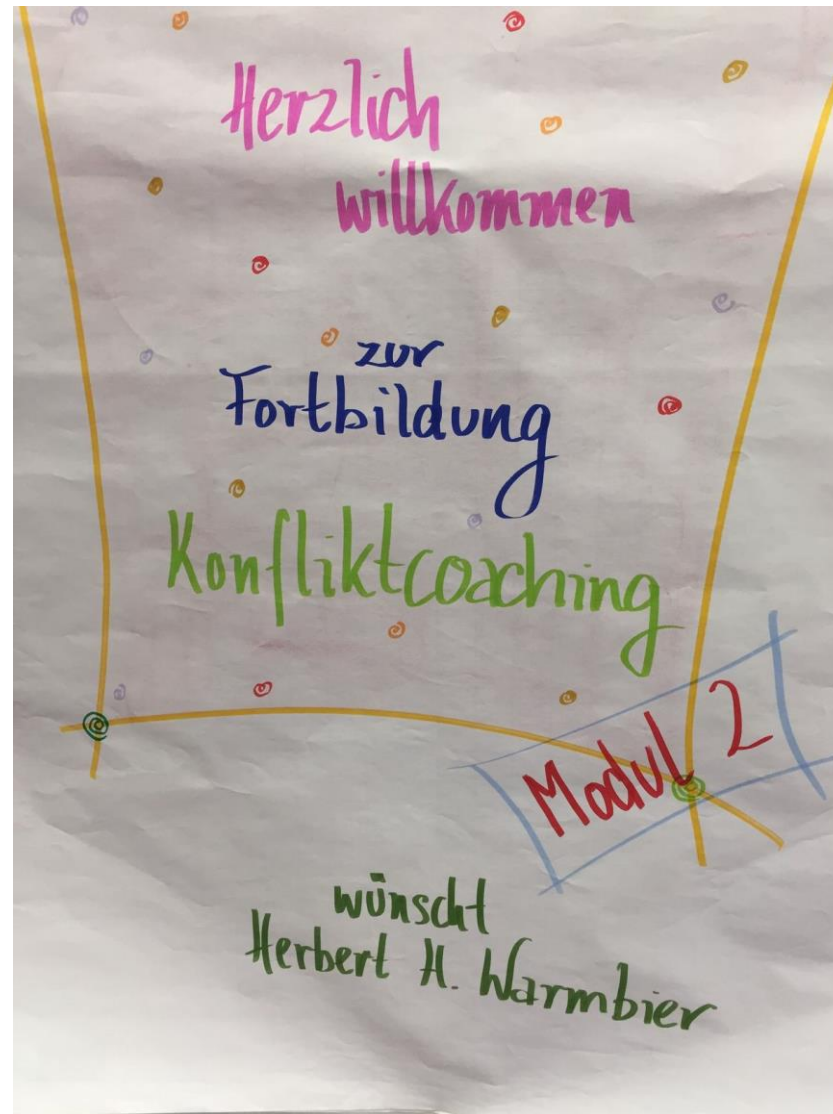 Herzlich
willkommen
zur
Fortbildung
Konfliktcoaching
Modul 2
wünscht
Herbert H. Warmbier